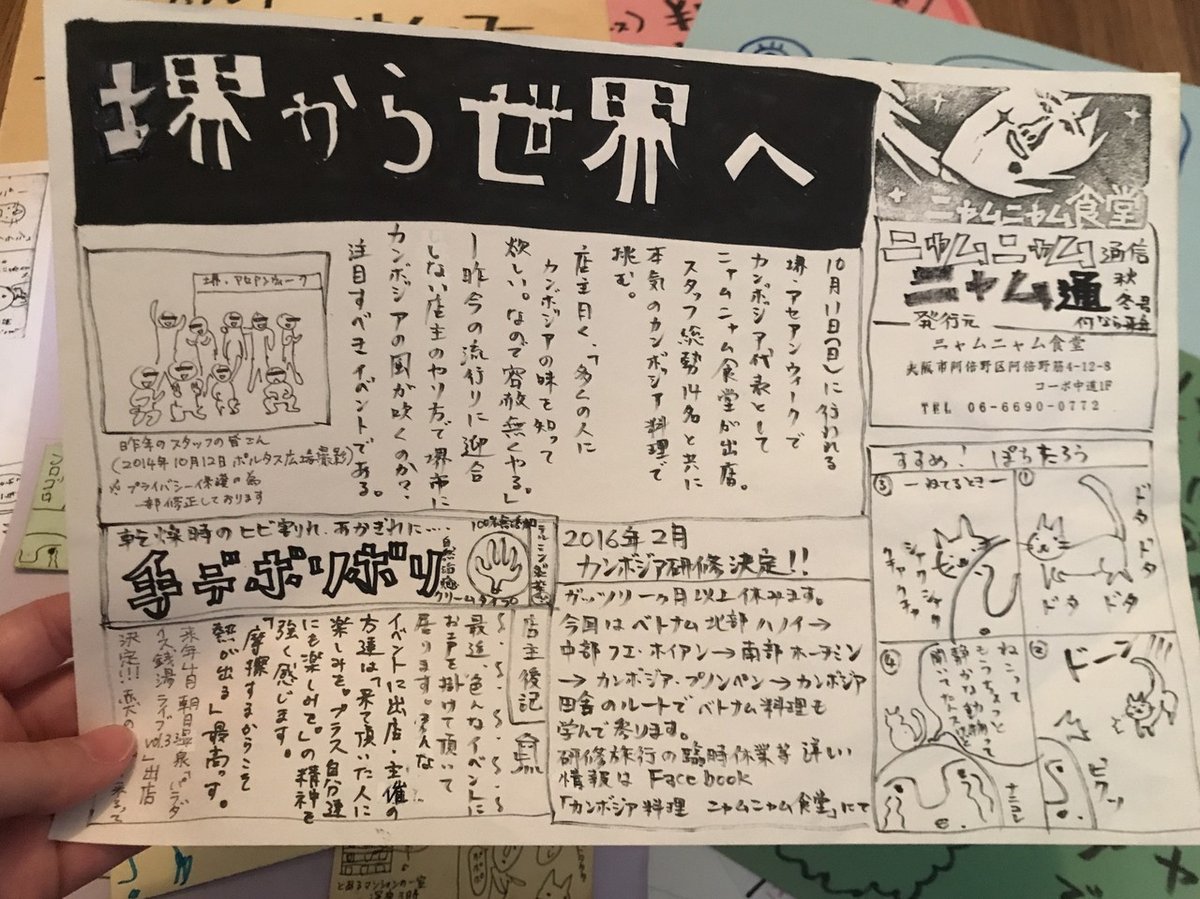 堺から世界へ
ニャムニャム食堂
ニャムニャム通信
ニャム通
秋冬号
発行元
ニャムニャム食堂
大阪市阿倍野区阿倍野筋4-12-8
コーポ中道1F
TEL 06-6690-0772
10月11日(日)に行われる
堺・アセアンウィークで
カンボジア代表として
ニャムニャム食堂が出店。
スタッフ総勢14名と共に
本気のカンボジア料理で
挑む。
店主曰く、「多くの人に
カンボジアの味を知って
欲しい。なので容赦無くやる」
ー昨今の流行りに迎合
しない店主のやり方で堺市に
カンボジアの風が吹くのか?、
注目すべきイベントである。
堺・アセアンウィーク
昨年のスタッフの皆さん
(2014年10月12日 ポルタス広場撮影)
※プライバシー保護の為
一部修正しております
乾燥時のヒビ割れ、あかぎれに…
手デボリボリ
100%無添加
自然治癒
クリームタイプ
2016年2月
カンボジア研修決定!!
ガッツリ一ヶ月以上休みます。
今回はベトナム北部ハノイ→
中部フエ・ホイアン→南部ホーチミン
→カンボジア・プノンペン→カンボジア
田舎のルートでベトナム料理も
学んで参ります。
研修旅行の臨時休業等詳しい
情報はFacebook
「カンボジア料理 ニャムニャム食堂」にて
店主後記
最近、色んなイベントに
お声を掛けて頂いて
居ります。そんな
イベントに出店・主催の
方達は「来て頂いた人に
楽しみを。プラス自分達
にも楽しみを。」の精神を
強く感じます。
「摩擦するからこそ
熱が出る」最高っす。
来年4月 朝日温泉
ス銭湯ライブvol.3」出店
決定!!!
すすめ!ぽちたろう
ーねてるときー
①
ドタ
ドタ
ドタ
ドタ
②
ドーン
ビクッ
③
シャク
シャク
④
ねこって
もうちょっと
静かな動物って
聞いてたんスけど